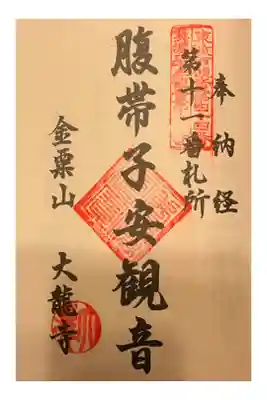 奉納経
第十一番札所
腹帯子安観音
金粟山
大龍寺